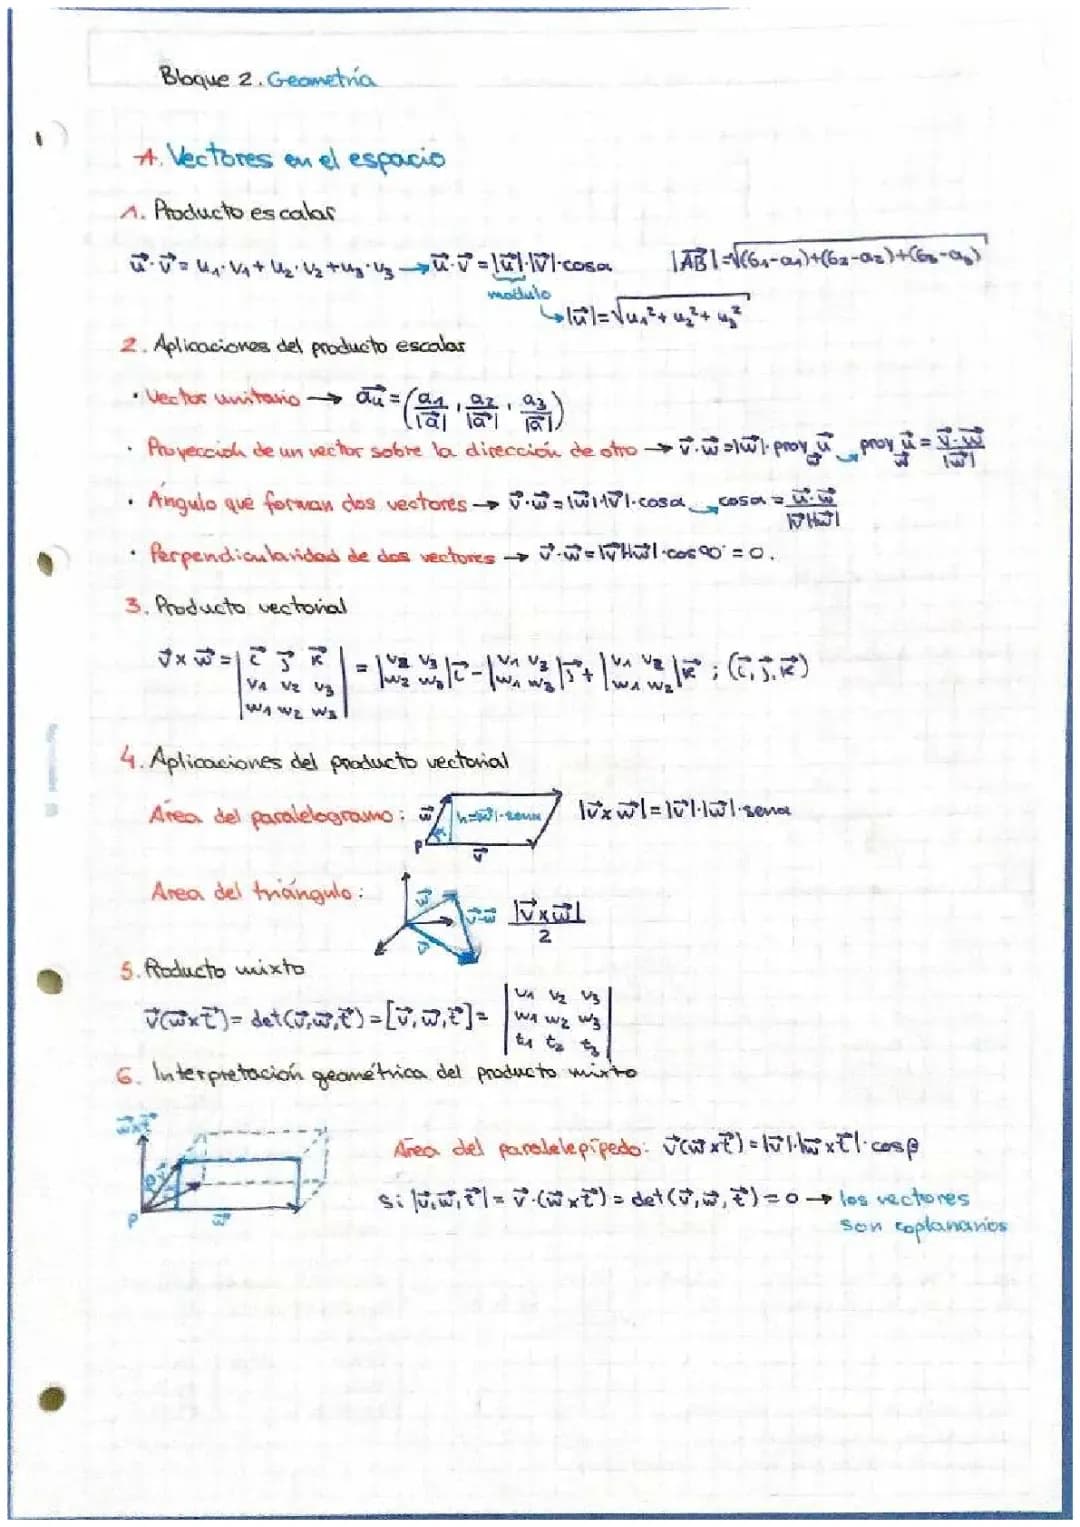 Bloque 2. Geometría
A. Vectores en el espacio
1. Producto escalar
u⃗·v⃗ = u₁·v₁ + u₂·v₂ + u₃·v₃ → u⃗·v⃗ = |u⃗|·|v⃗|·cosα |AB⃗| = √(b₁-a₁)+(b₂-a₂)+(b₃-a₃)
modulo
↳ |u⃗| = √u₁²+u₂²+u₃²
2. Aplicaciones del producto escalar
· Vector unitario → a⃗u = (a₁/|a⃗|, a₂/|a⃗|, a₃/|a⃗|)
· Proyección de un vector sobre la dirección de otro → v⃗·w⃗ = |w⃗|·proy_w⃗ u⃗ → proy_w⃗ u⃗ = v⃗·w⃗/|w⃗|
· Ángulo que forman dos vectores → v⃗·w⃗ = |w⃗|·|v⃗|·cosα → cosα = u⃗·w⃗/|v⃗|·|w⃗|
· Perpendicularidad de dos vectores → v⃗·w⃗ = |v⃗|·|w⃗|·cos90° = 0.
3. Producto vectorial
v⃗ x w⃗ = |i⃗ j⃗ k⃗| = |v₂ v₃| i⃗ - |v₁ v₃| j⃗ + |v₁ v₂| k⃗ ; (i⃗, j⃗, k⃗)
v₁ v₂ v₃ w₂ w₃ w₁ w₃ w₁ w₂
w₁ w₂ w₃
4. Aplicaciones del producto vectorial
Área del paralelogramo: w⃗ h=|w⃗|·senα |v⃗xw⃗| = |v⃗|·|w⃗|·senα
P v⃗
Área del triángulo: w⃗ v⃗-w⃗ |v⃗xw⃗|
v⃗ 2
5. Producto mixto
v⃗(w⃗xt⃗) = det(v⃗,w⃗,t⃗) = [v⃗,w⃗,t⃗] = |v₁ v₂ v₃|
w₁ w₂ w₃
t₁ t₂ t₃
6. Interpretación geométrica del producto mixto
w⃗xt⃗
Área del paralelepípedo: v⃗(w⃗xt⃗) = |v⃗|·|w⃗xt⃗|·cosβ
Si |v⃗,w⃗,t⃗| = v⃗·(w⃗xt⃗) = det(v⃗,w⃗,t⃗) = 0 → los vectores
P w⃗
son coplanarios